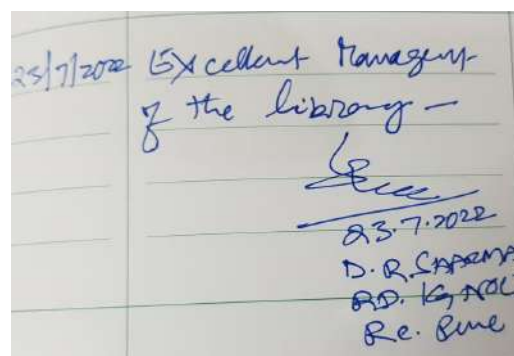 23/7/2022 Excellent Managemt
of the library —
23.7.2022
D.R. SHARMA
RD. IGNOU
Rc. Pune